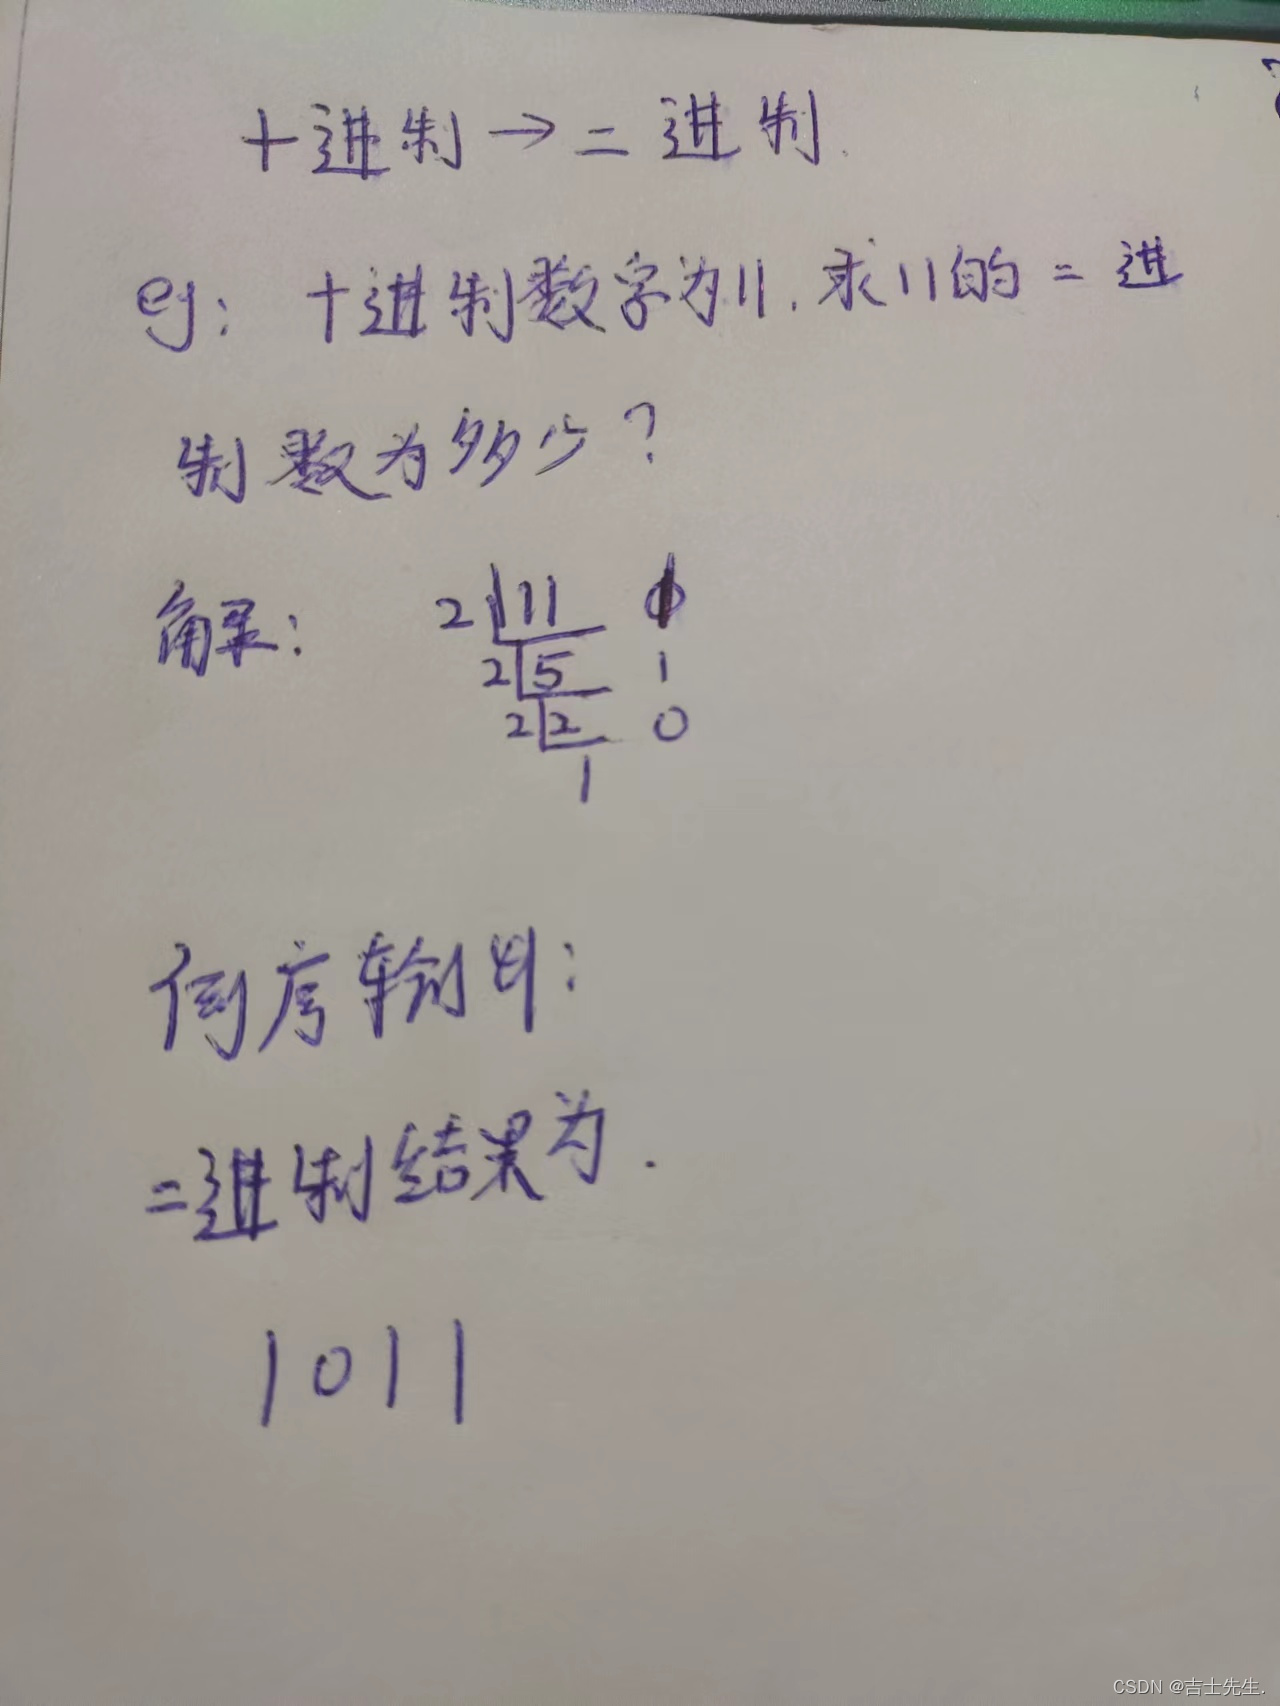 十进制→二进制.
eg: 十进制数字为11.求11的二进
制数为多少?
解: 2 11 1
2 5 1
2 2 0
1
倒序输出:
二进制结果为.
1011
CSDN @吉士先生.